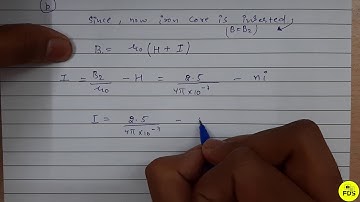 (b)
Since, now iron core is inserted,
(B=B₂)
B = μ₀ (H + I)
I = B₂/μ₀ - H = 2.5/4π×10⁻⁷ - ni
I = 2.5/4π×10⁻⁷ -
FDS